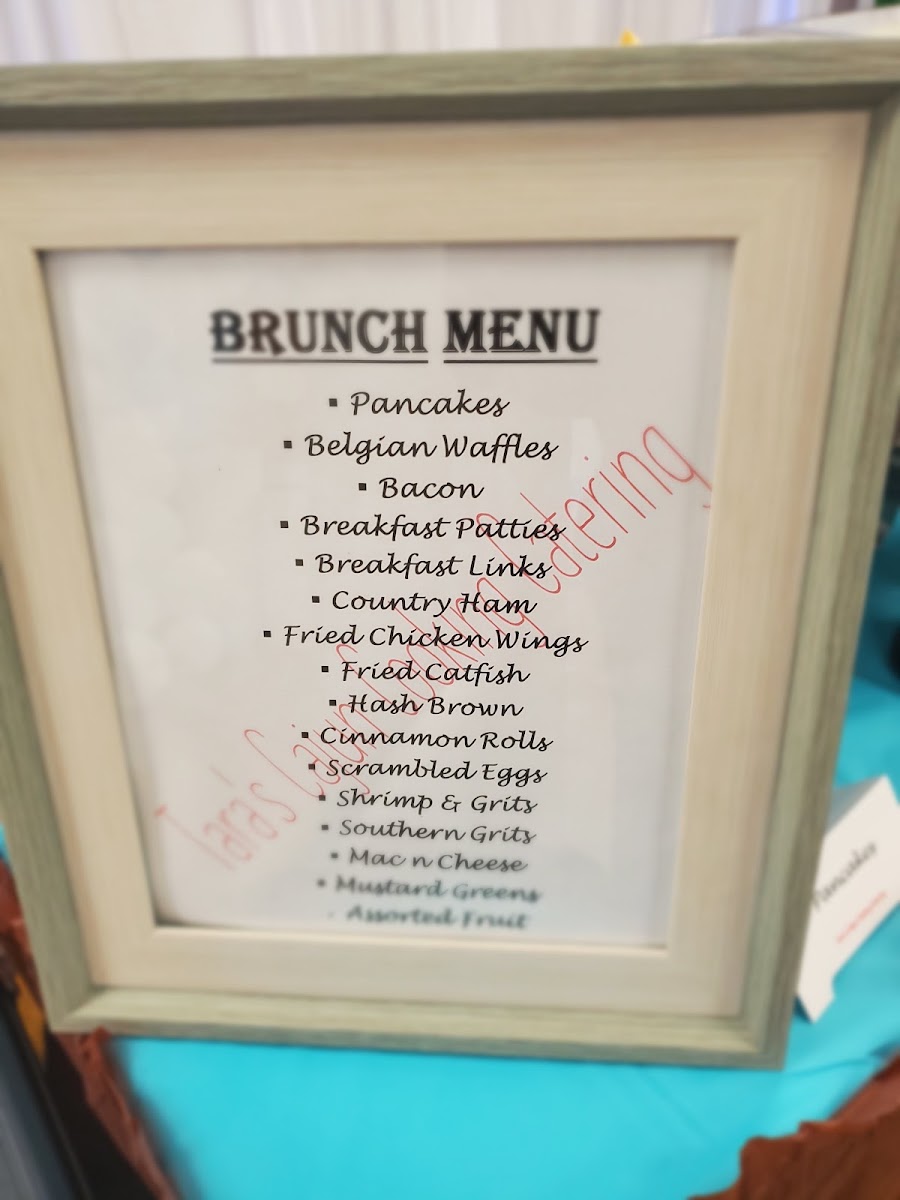 BRUNCH MENU
▪ Pancakes
▪ Belgian Waffles
▪ Bacon
▪ Breakfast Patties
▪ Breakfast Links
▪ Country Ham
▪ Fried Chicken Wings
▪ Fried Catfish
▪ Hash Brown
▪ Cinnamon Rolls
▪ Scrambled Eggs
▪ Shrimp & Grits
▪ Southern Grits
▪ Mac n Cheese
▪ Mustard Greens
▪ Assorted Fruit
Tara's Cajun Cooking Catering
Pancakes